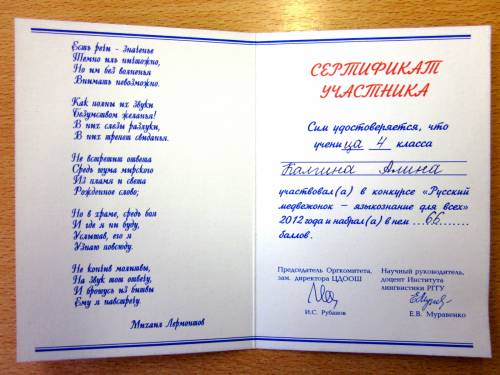 Есть речи - значенье
Темно иль ничтожно,
Но им без волненья
Внимать невозможно.
Как полны их звуки
Безумством желанья!
В них слезы разлуки,
В них трепет свиданья.
Не встретит ответа
Средь шума мирского
Из пламя и света
Рожденное слово;
Но в храме, средь боя
И где я ни буду,
Услышав, его я
Узнаю повсюду.
Не кончив молитвы,
На звук тот отвечу,
И брошусь из битвы
Ему я навстречу.
Михаил Лермонтов
СЕРТИФИКАТ
УЧАСТНИКА
Сим удостоверяется, что
учени ца 4 класса
Калгина Алина
участвовал(а) в конкурсе «Русский
медвежонок – языкознание для всех»
2012 года и набрал(а) в нем ...66......
баллов.
Председатель Оргкомитета,
зам. директора ЦДООШ
И.С. Рубанов
Научный руководитель,
доцент Института
лингвистики РГГУ
Е.В. Муравенко